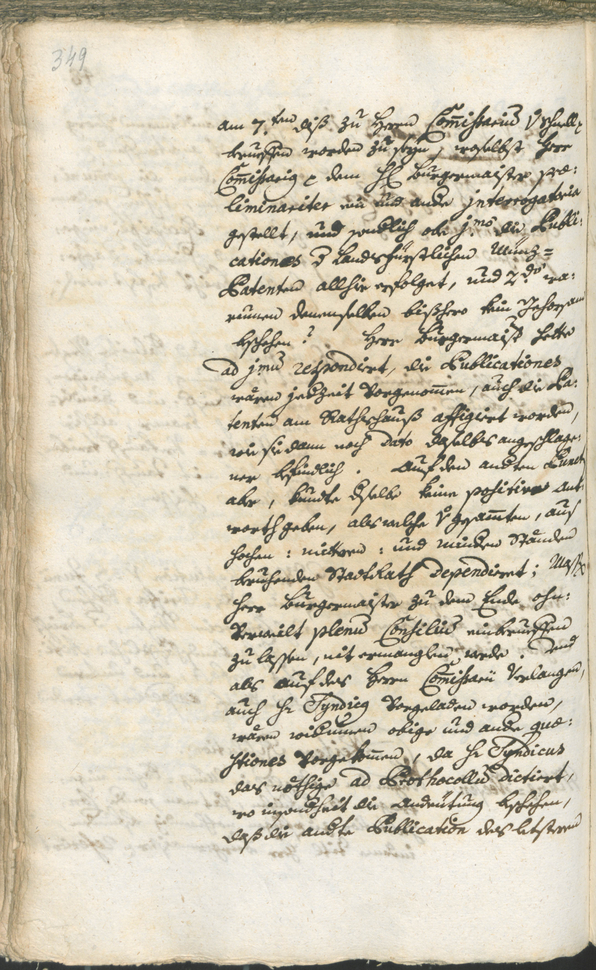 349
am 7.ten diß zu Herrn Commissario
berueffen worden zu seyn, woselbst Herr
Commissarig dem H: Burgermaister præ:
liminariter ein und andre interrogatoria
gestellt, und sonderlich ob j.mo die Publi:
cationes Landsfürstlichen Münz=
Patenten allhier erfolget, und 2.do wa:
rumen denenselben bißhero kein Gehorsam
beschehen? Herr Burgermaister hette
ad jmũ respondirt, die Publicationes
wären jedzeit vorgenommen, auch die Pa:
tenten am Rathshauß affigiert worden,
wie sie dann noch dato daselbst angeschlage:
ner befindlich. Auf den andten Punct
aber, kundte dselbe keine positive Ant:
worth geben, als welche gesammten, auß
hochen: mittern: und mindern Ständen
beruhenden StadtRath dependirt;
Herr Burgermaister zu dem Ende ohn:
verweilt plenũ Consiliũ einberueffen
zu lassen, nit ermanglen werde. Und
als auf des Herrn Comissarii Verlangen,
auch Hr Syndicg vorgeladen worden,
wären widerumen obige und andre quæ:
stiones vorgekommen, da Hr Syndicus
das nöthige ad Prothocollũ dictiert,
wo die Andeütung beschehen,
daß die andte Publication des letstern